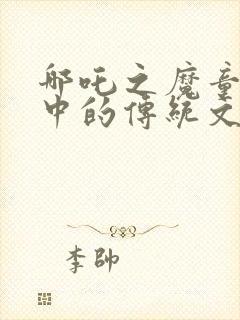 哪吒之魔童
中的傳統文
李帥